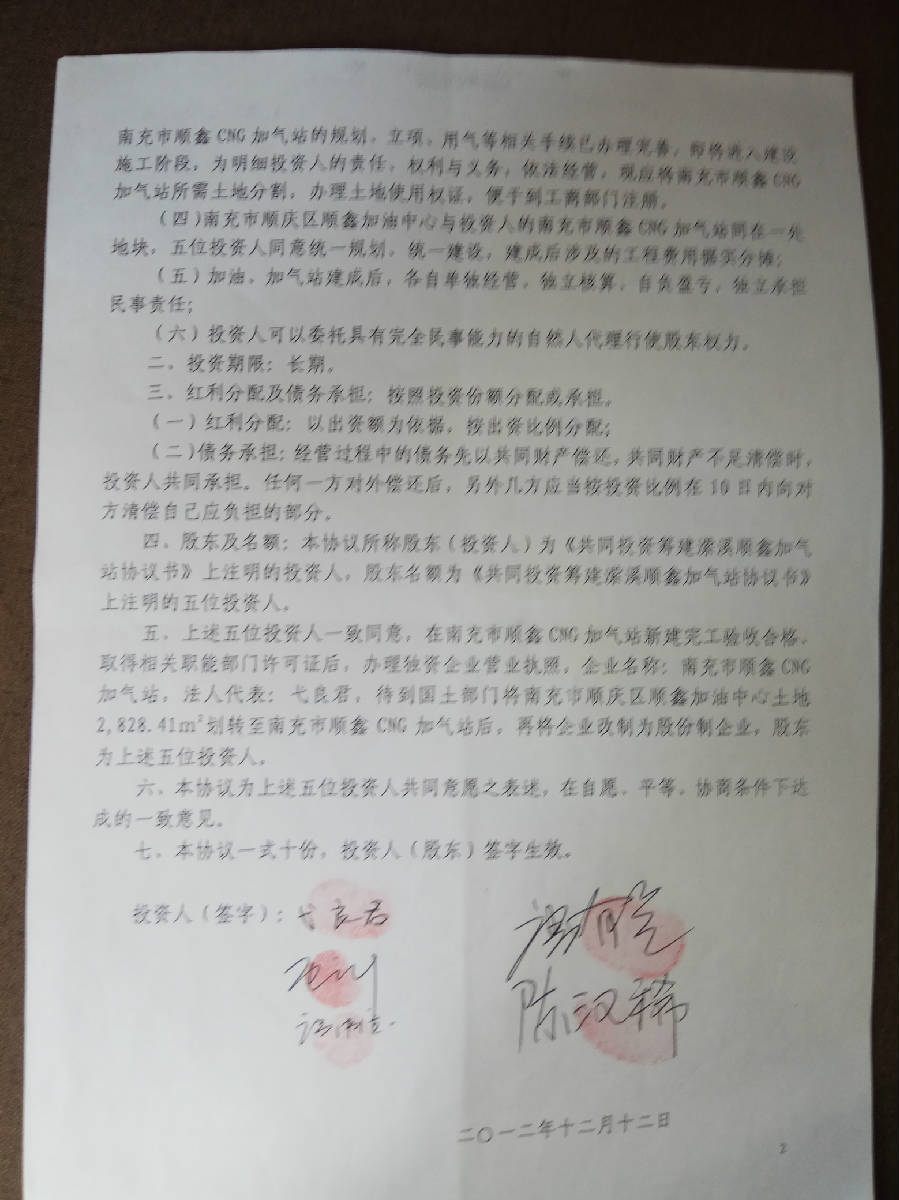 南充市顺鑫CNG加气站的规划、立项、用气等相关手续已办理完善，即将进入建设
施工阶段，为明细投资人的责任、权利与义务，依法经营，现应将南充市顺鑫CNG
加气站所需土地分割，办理土地使用权证，便于到工商部门注册。
(四)南充市顺庆区顺鑫加油中心与投资人的南充市顺鑫CNG加气站同在一处
地块，五位投资人同意统一规划、统一建设，建成后涉及的工程费用据实分摊；
(五)加油、加气站建成后，各自单独经营、独立核算、自负盈亏，独立承担
民事责任；
(六)投资人可以委托具有完全民事能力的自然人代理行使股东权力。
二、投资期限：长期。
三、红利分配及债务承担：按照投资份额分配或承担。
(一)红利分配：以出资额为依据，按出资比例分配；
(二)债务承担：经营过程中的债务先以共同财产偿还，共同财产不足清偿时，
投资人共同承担。任何一方对外偿还后，另外几方应当按投资比例在10日内向对
方清偿自己应负担的部分。
四、股东及名额：本协议所称股东(投资人)为《共同投资筹建潆溪顺鑫加气
站协议书》上注明的投资人，股东名额为《共同投资筹建潆溪顺鑫加气站协议书》
上注明的五位投资人。
五、上述五位投资人一致同意，在南充市顺鑫CNG加气站新建完工验收合格、
取得相关职能部门许可证后，办理独资企业营业执照，企业名称：南充市顺鑫CNG
加气站，法人代表：弋良君，待到国土部门将南充市顺庆区顺鑫加油中心土地
2,828.41m²划转至南充市顺鑫CNG加气站后，再将企业改制为股份制企业，股东
为上述五位投资人。
六、本协议为上述五位投资人共同意愿之表述，在自愿、平等、协商条件下达
成的一致意见。
七、本协议一式十份，投资人(股东)签字生效。
投资人(签字)：弋良君
陈汉
二〇一二年十二月十二日
2